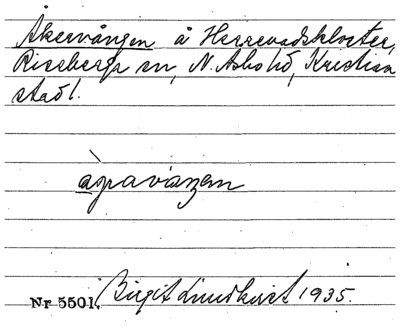 Åkervången å Herrevadskloster,
Riseberga sn, N. Åsbo hd, Kristian
stad l.
Nr 5501. Birgit Lindkvist 1935.